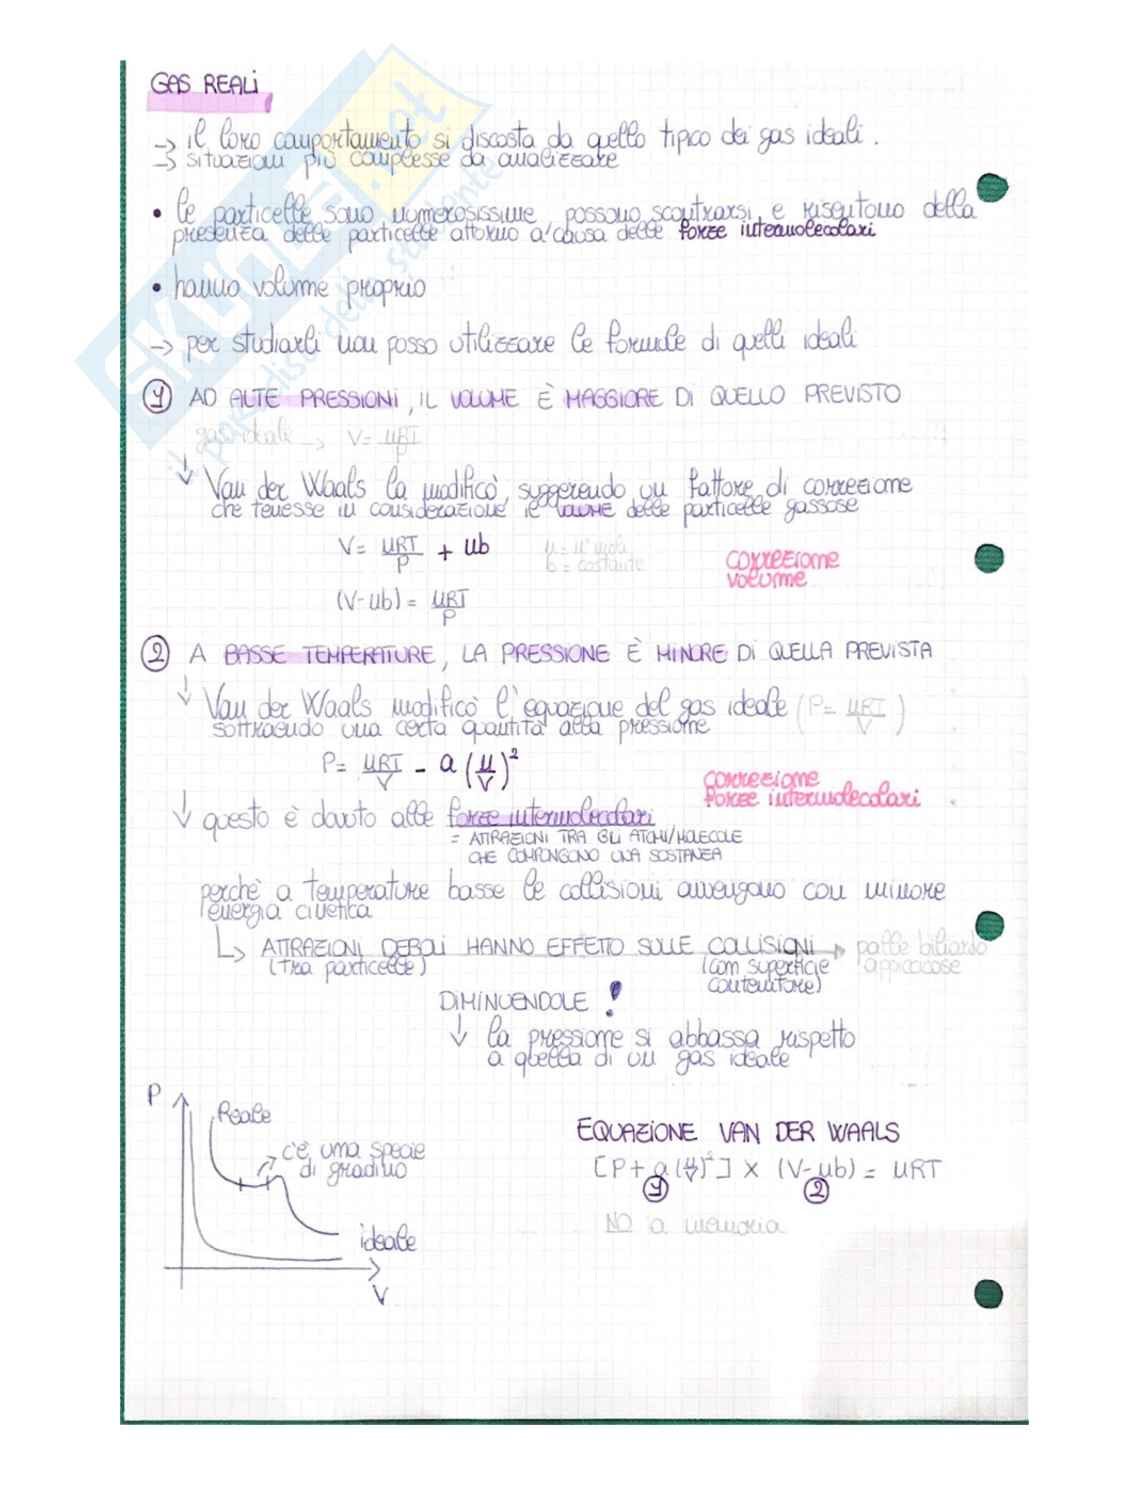 GAS REALI
→ il loro comportamento si discosta da quello tipico dei gas ideali.
→ situazioni più complesse da analizzare
• le particelle sono numerosissime, possono scontrarsi e risentono della
presenza delle particelle attorno a causa delle forze intermolecolari
• hanno volume proprio
→ per studiarli non posso utilizzare le formule di quelli ideali
1 AD ALTE PRESSIONI, IL VOLUME È MAGGIORE DI QUELLO PREVISTO
gas ideali → V= nRT/P
↓ Van der Waals la modificò, suggerendo un fattore di correzione
che tenesse in considerazione il VOLUME delle particelle gassose
V= nRT/P + nb
n = n° moli
b = costante
correzione
volume
(V-nb) = nRT/P
2 A BASSE TEMPERATURE, LA PRESSIONE È MINORE DI QUELLA PREVISTA
↓ Van der Waals modificò l'equazione del gas ideale (P= nRT/V)
sottraendo una certa quantità alla pressione
P= nRT/V - a (n/V)²
correzione
forze intermolecolari
↓ questo è dovuto alle forze intermolecolari
= ATTRAZIONI TRA GLI ATOMI/MOLECOLE
CHE COMPONGONO UNA SOSTANZA
perchè a temperature basse le collisioni avvengono con minore
energia cinetica
↳ ATTRAZIONI DEBOLI HANNO EFFETTO SULLE COLLISIONI → palle biliardo
(tra particelle) (con superficie appiccicose
contenitore)
DIMINUENDOLE !
↓ la pressione si abbassa rispetto
a quella di un gas ideale
P
Reale
c'è una specie
di gradino
ideale
V
EQUAZIONE VAN DER WAALS
[P+ a (n/V)²] x (V-nb) = nRT
1 2
NO a memoria
SKUOLA.net
il paradiso dello studente